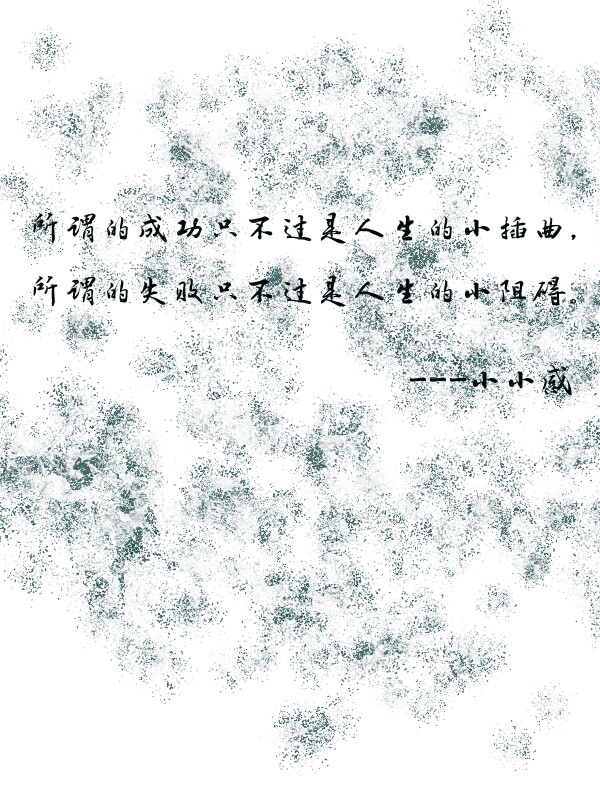 所谓的成功只不过是人生的小插曲,
所谓的失败只不过是人生的小阻碍。
---小小感